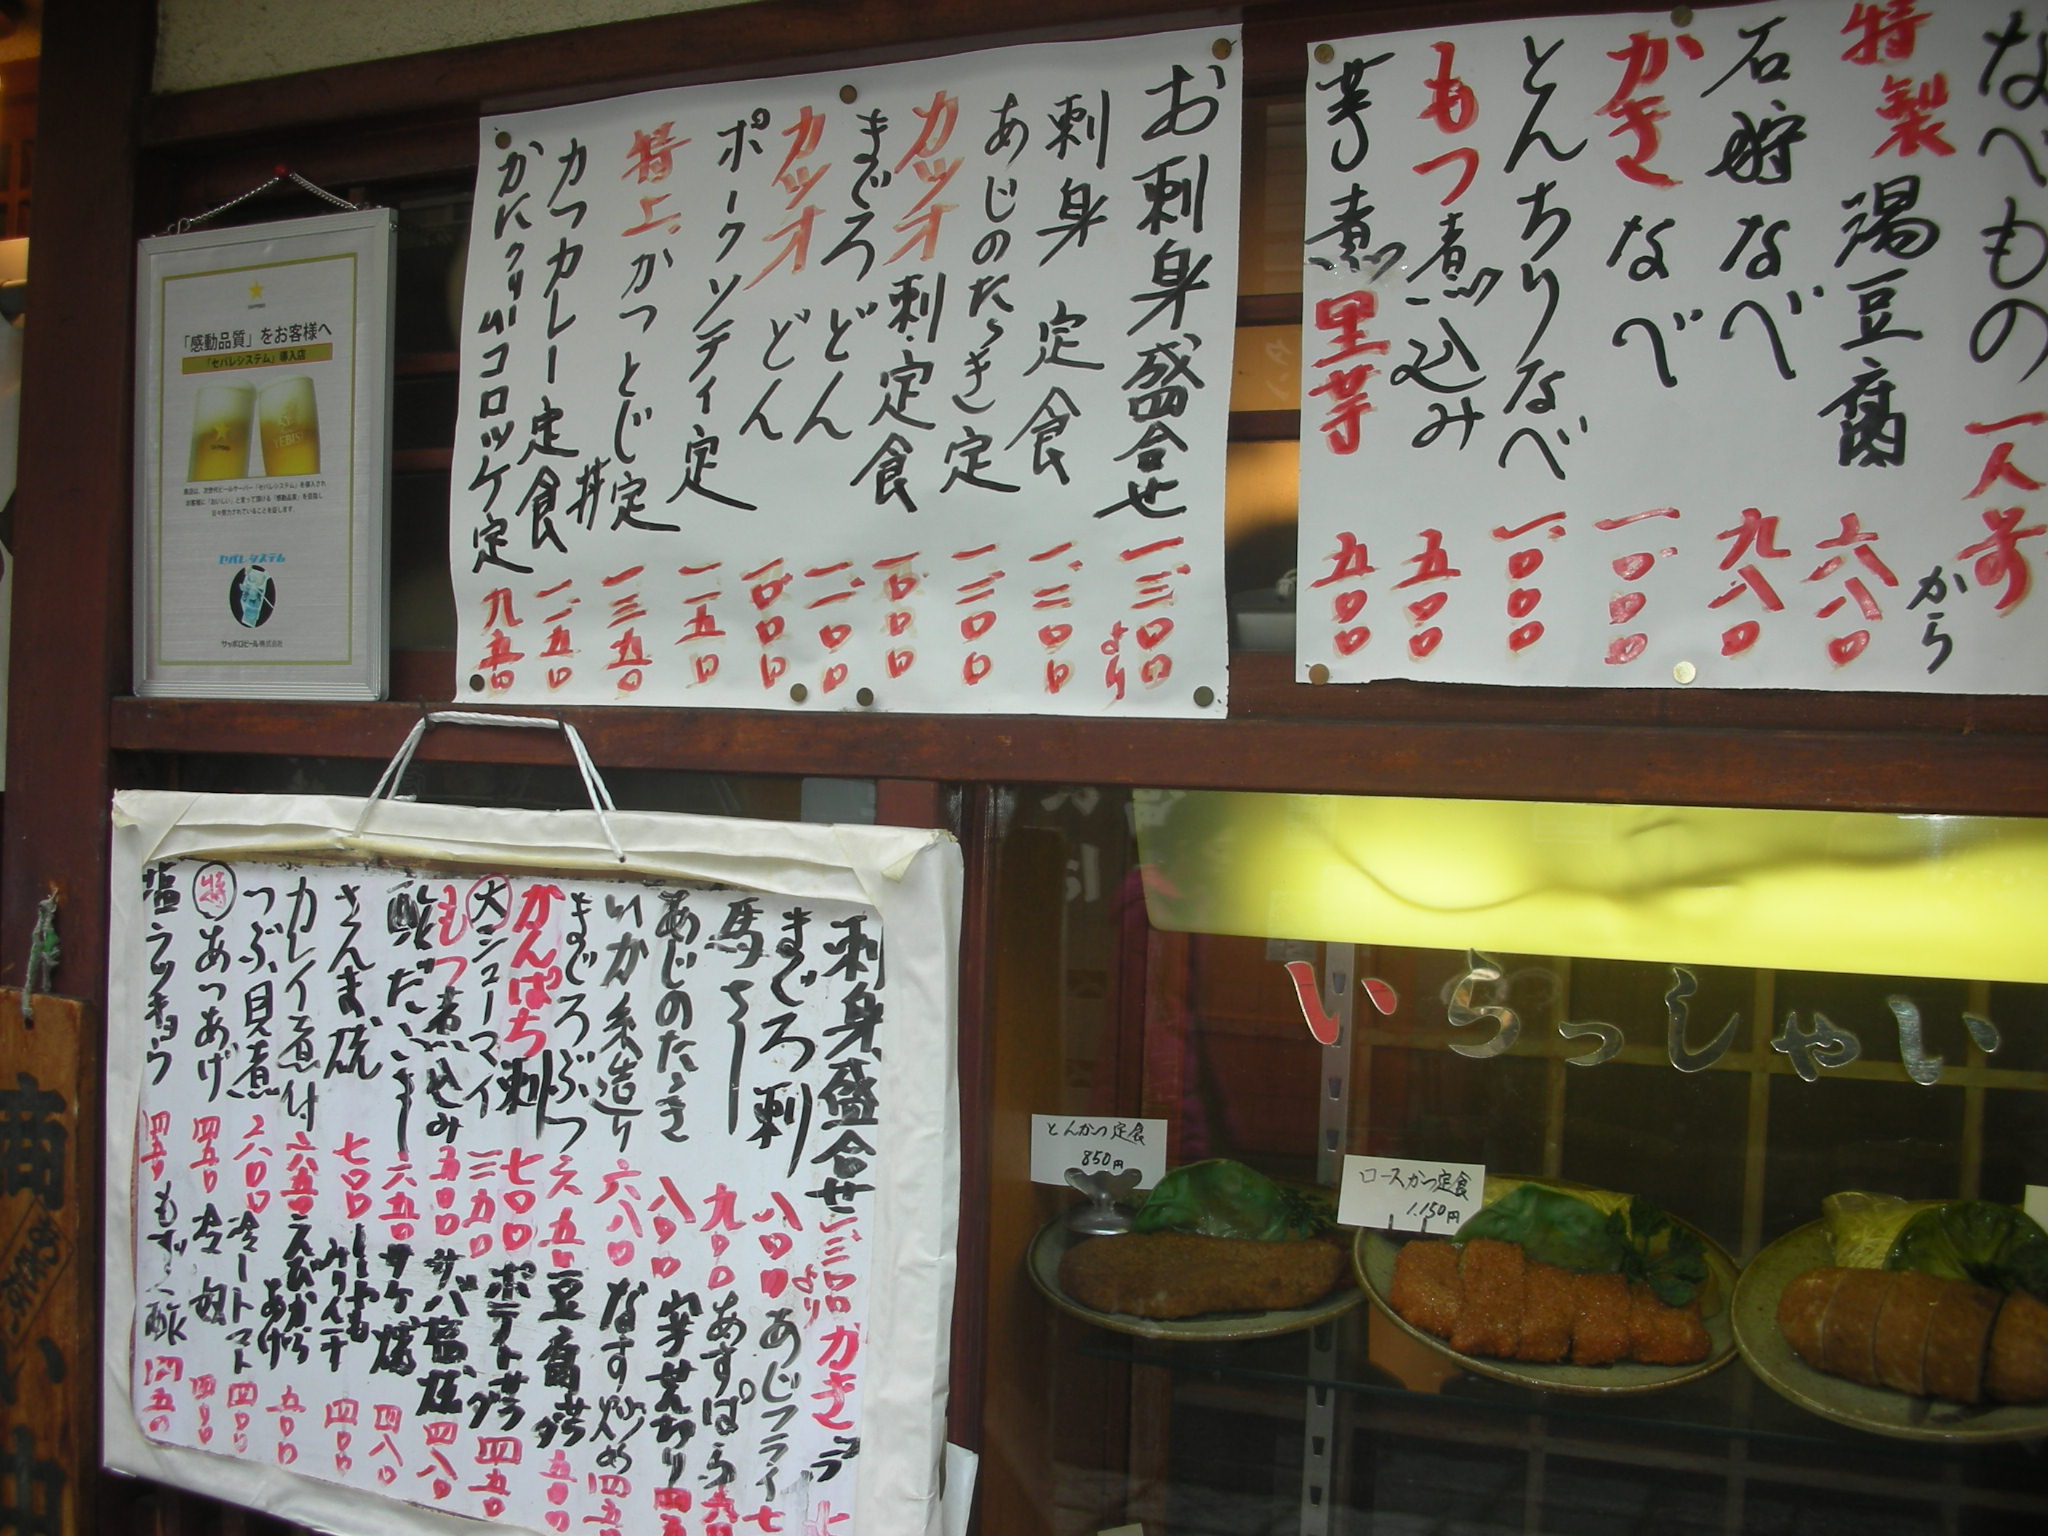 なべもの 一人前 から
特製 湯豆腐 六八〇
石狩なべ 九八〇
かきなべ 一、〇〇〇
とんちりなべ 一、〇〇〇
もつ煮込み 五〇〇
芋の煮っ 里芋 五〇〇
お刺身盛合せ 一、三〇〇より
刺身定食 一、二〇〇
あじのたゝき定 一、二〇〇
カツオ刺定食 一、〇〇〇
まぐろどん 一、二〇〇
カツオどん 一、〇〇〇
ポークソティ定 一、一五〇
特上かつとじ定 丼 一、三五〇
カツカレー定食 一、一五〇
かにクリームコロッケ定 九五〇
「感動品質」をお客様へ
「セパレシステム」導入店
YEBISU
セパレシステム
サッポロビール株式会社
刺身盛合せ 一、三〇〇より
まぐろ刺 八〇〇
馬さし 九〇〇
あじのたゝき 八〇〇
いか糸造り 六八〇
まぐろぶつ 六五〇
かんぱち刺 七〇〇
大シューマイ 三五〇
もつ煮込み 五〇〇
酢だこ 六五〇
さんま焼 七〇〇
カレイ煮付 六五〇
つぶ貝煮 六〇〇
特 あつあげ 四五〇
塩ラッキョウ 四五〇
かきフライ
あじフライ 七
あすぱら
なす炒め 四五〇
豆腐サラダ 五〇〇
ポテトサラダ 四五〇
サバ塩焼 四八〇
サケ焼 四八〇
ししゃも みりん干 四〇〇
えびからあげ 五〇〇
冷トマト 四〇〇
冷奴 四〇〇
もずく酢 四五〇
いらっしゃい
とんかつ定食
850円
ロースかつ定食
1,150円
商い中